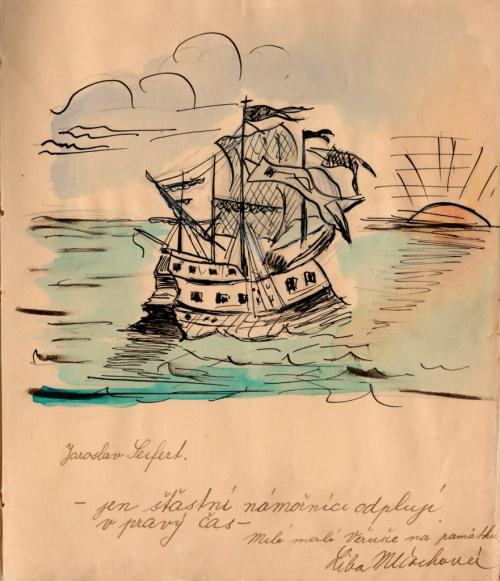 Jaroslav Seifert.
– jen šťastní námořníci odplují
v pravý čas –
Milé malé Věrušce na památku
Liba